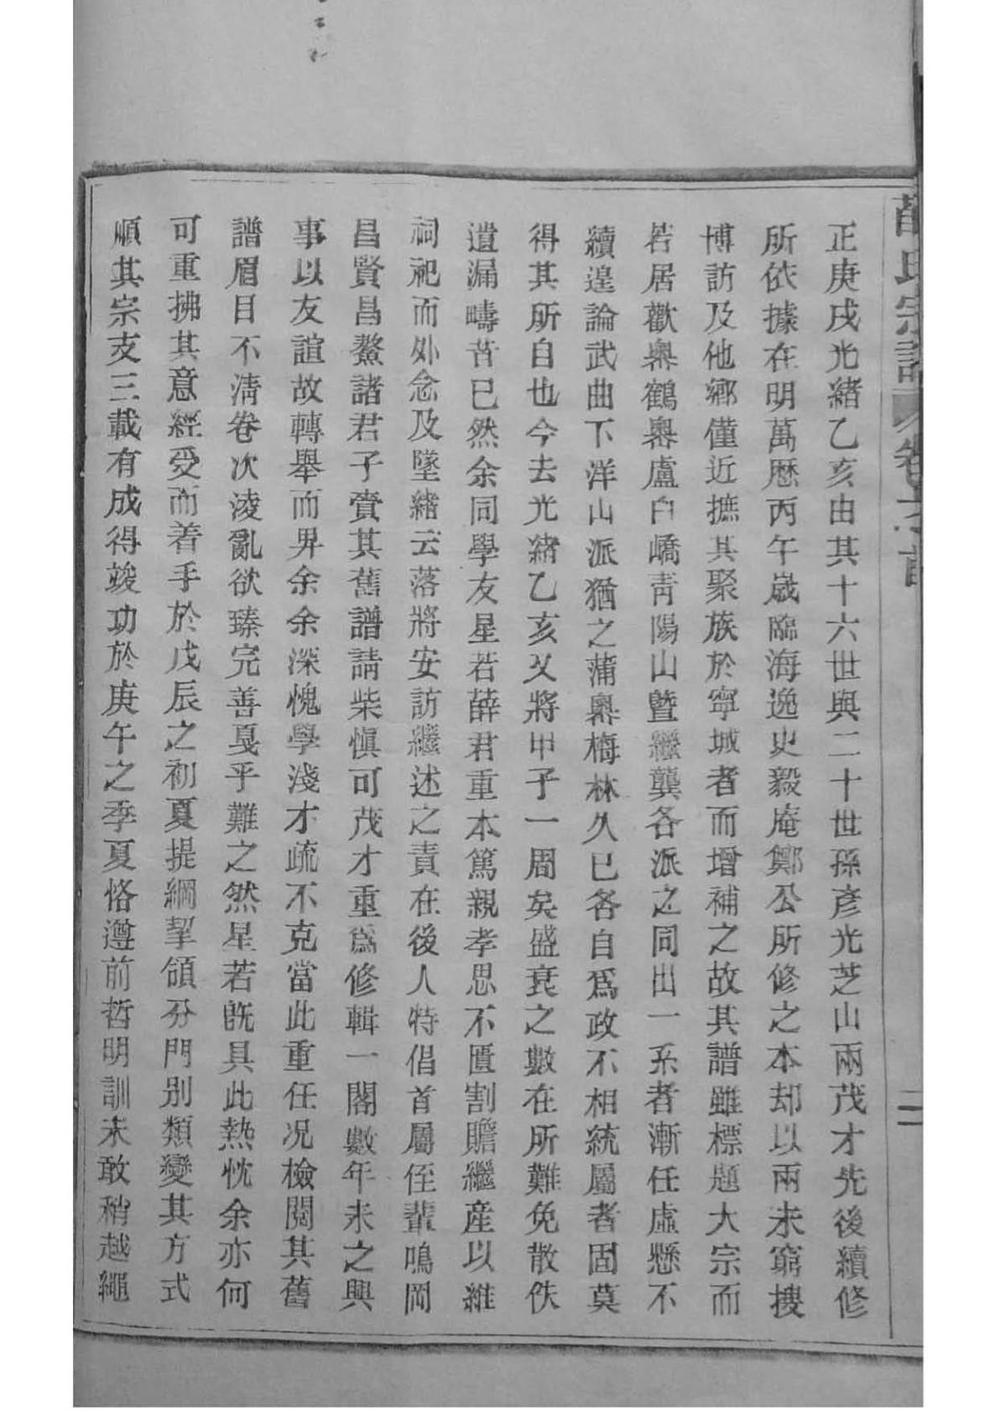 薛氏宗譜 卷六 首 二
正庚戌光緒乙亥由其十六世與二十世孫彥光芝山兩茂才先後續修
所依據在明萬曆丙午歲臨海逸史毅庵鄭公所修之本却以兩未窮搜
博訪及他鄉僅近摭其聚族於寧城者而增補之故其譜雖標題大宗而
若居歡嶴鶴嶴盧白嶠靑陽山曁繼龔各派之同出一系者漸任虛懸不
續遑論武曲下洋山派猶之蒲嶴梅林久已各自爲政不相統屬者固莫
得其所自也今去光緒乙亥又將甲子一周矣盛衰之數在所難免散佚
遺漏疇昔已然余同學友星若薛君重本篤親孝思不匱割贍繼產以維
祠祀而外念及墜緒云落將安訪繼述之責在後人特倡首屬侄輩鳴岡
昌賢昌鰲諸君子賫其舊譜請柴愼可茂才重爲修輯一閣數年未之興
事以友誼故轉舉而畀余余深愧學淺才疏不克當此重任况檢閱其舊
譜眉目不淸卷次淩亂欲臻完善戞乎難之然星若旣具此熱忱余亦何
可重拂其意經受而着手於戊辰之初夏提綱挈領分門別類變其方式
順其宗支三載有成得竣功於庚午之季夏恪遵前哲明訓未敢稍越繩